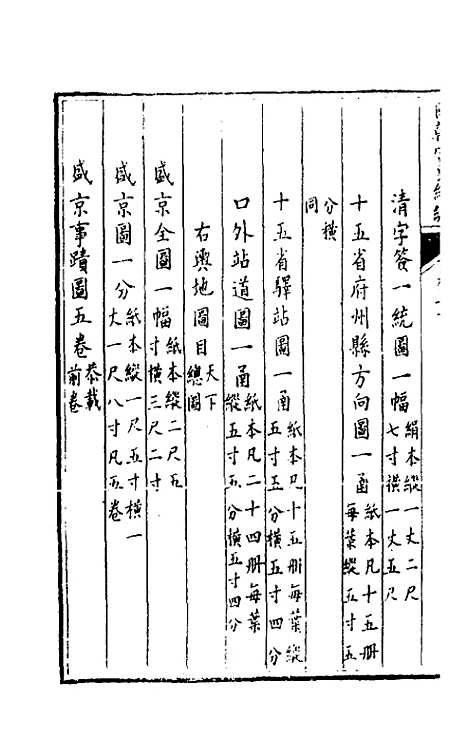 清字签一統圖一幅絹本縱一丈二尺七寸橫一丈五尺
十五省府州縣方向圖一函紙本凡十五册每葉縱五寸五
分橫同
十五省驛站圖一函紙本凡十五册每葉縱五寸五分橫五寸四分
口外站道圖一函紙本凡二十四册每葉縱五寸五分橫五寸四分
右輿地圖目天下總圖
盛京全圖一幅紙本縱二尺五寸橫三尺二寸
盛京圖一分紙本縱一尺五寸橫一丈一尺八寸凡五卷
盛京事蹟圖五卷恭載前卷